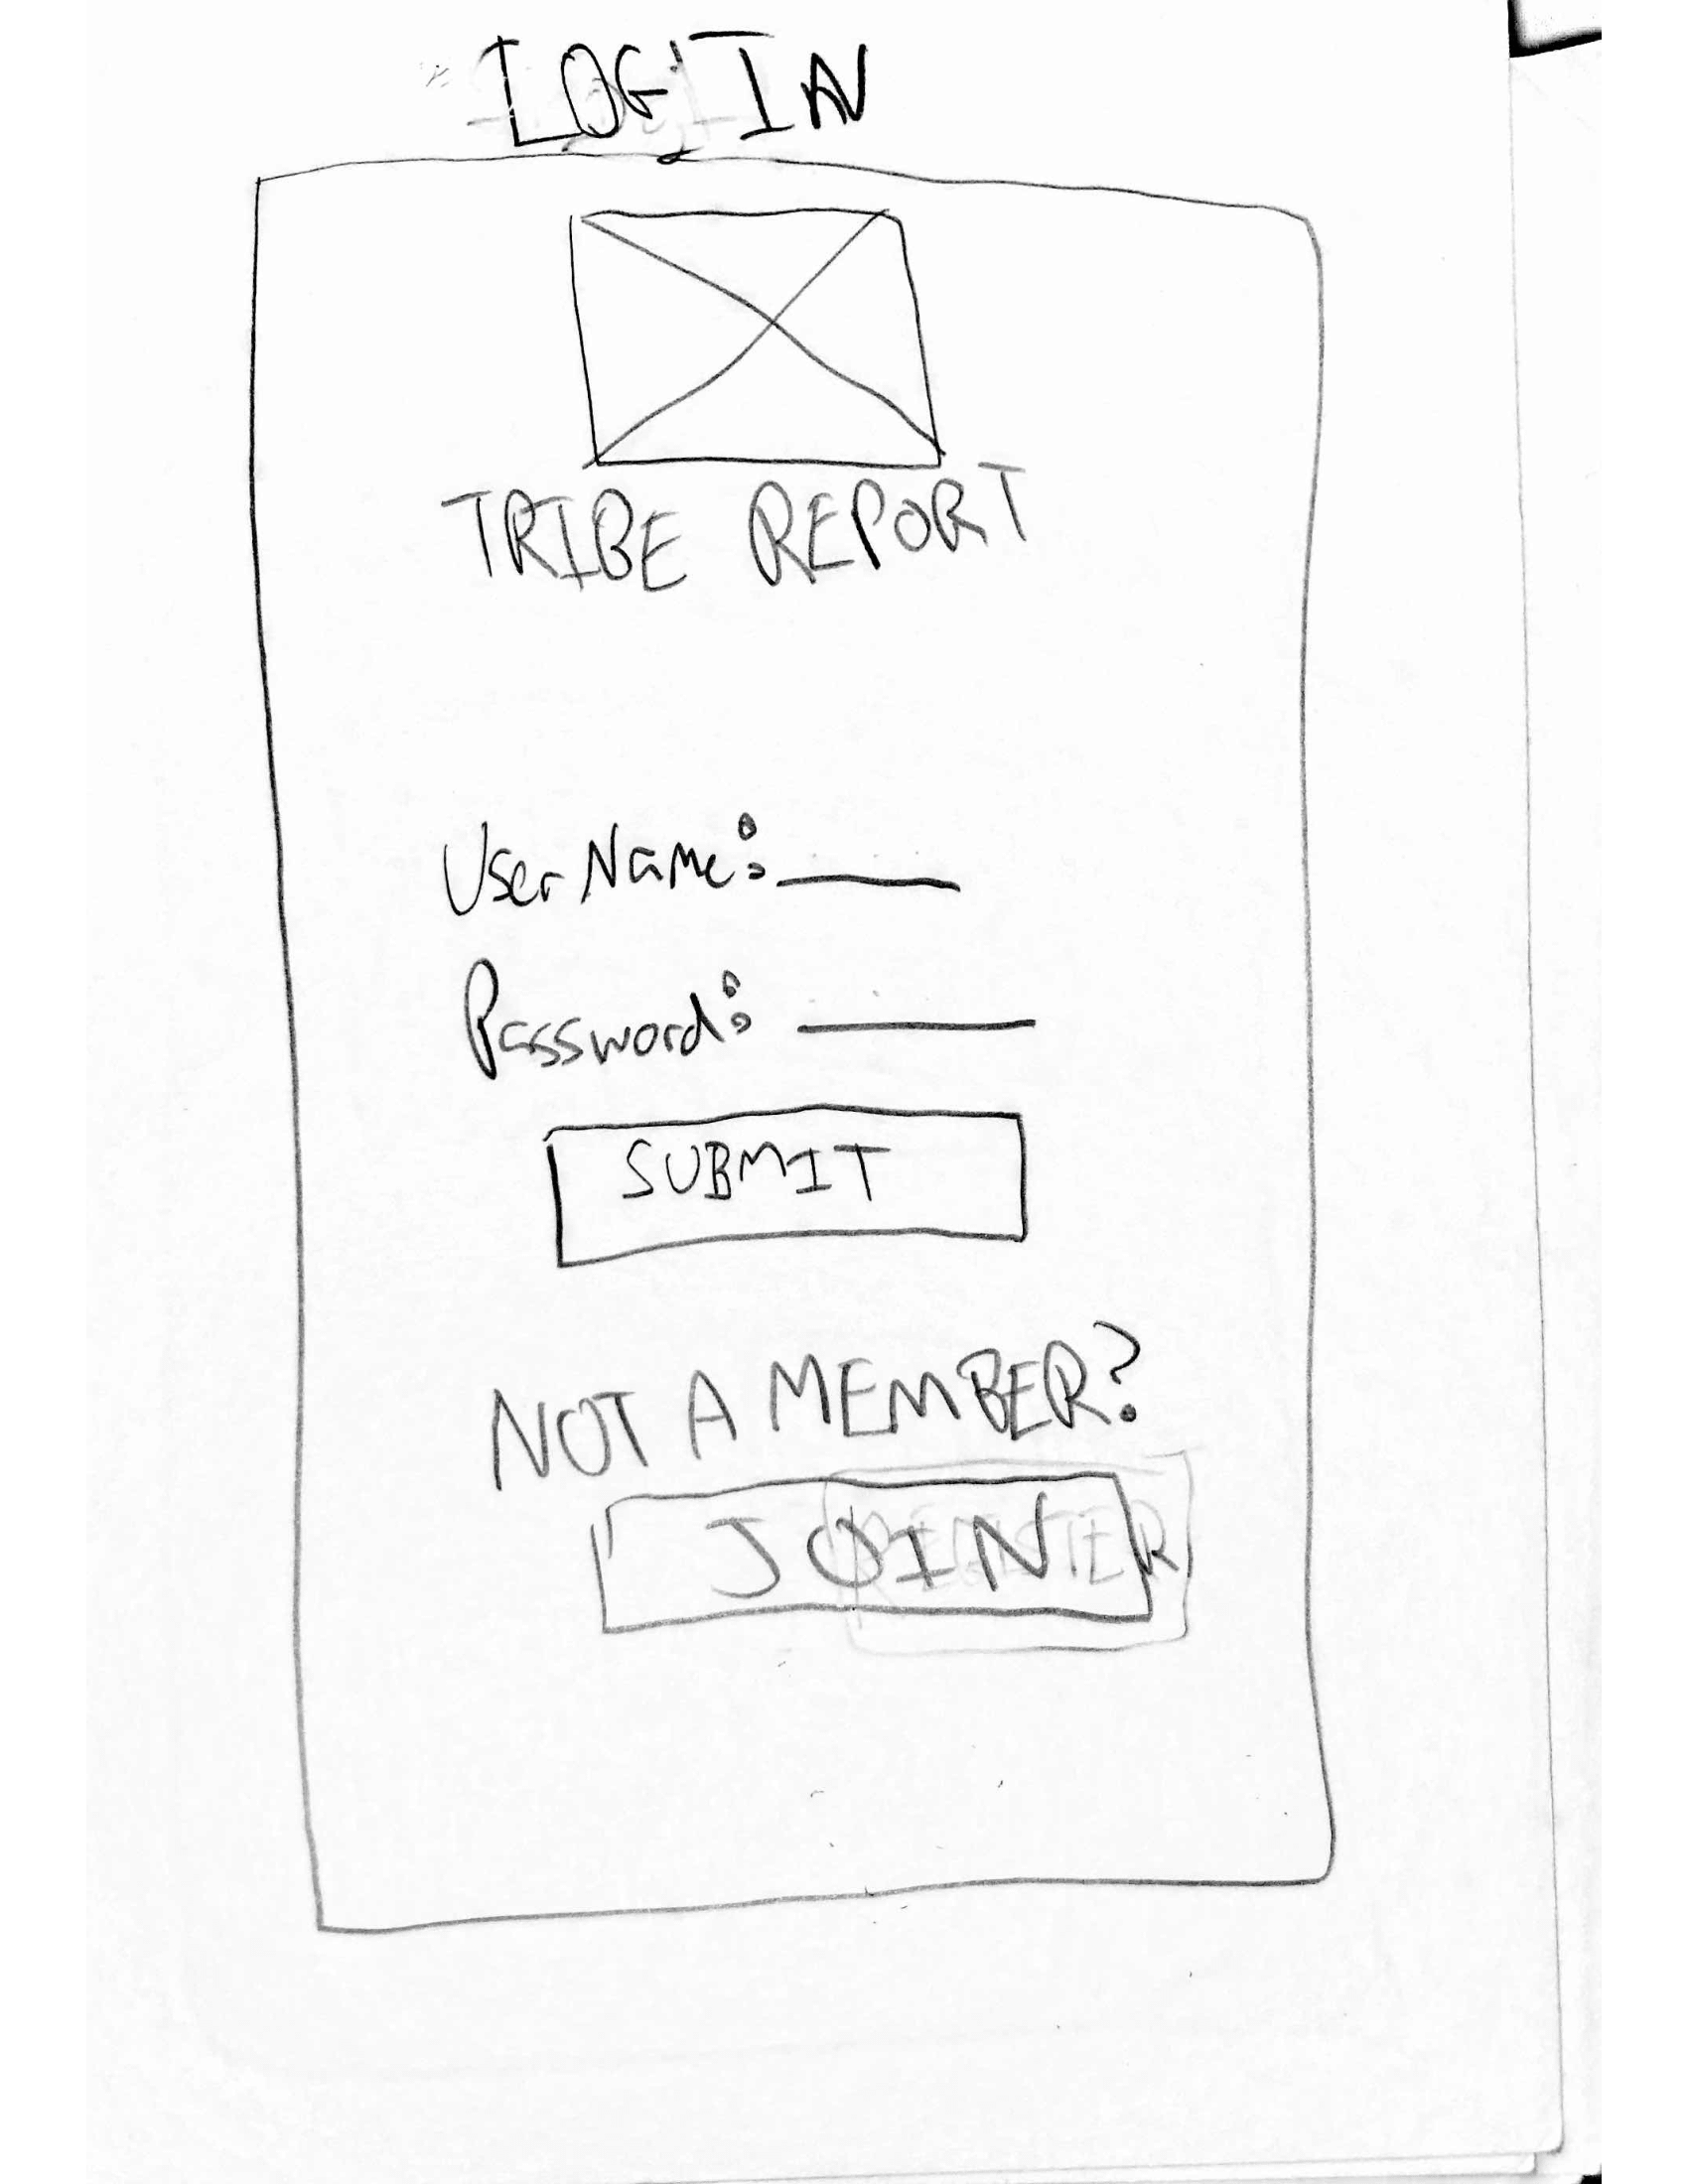 LOG IN
TRIBE REPORT
User Name:
Password:
SUBMIT
NOT A MEMBER?
JOIN
REGISTER